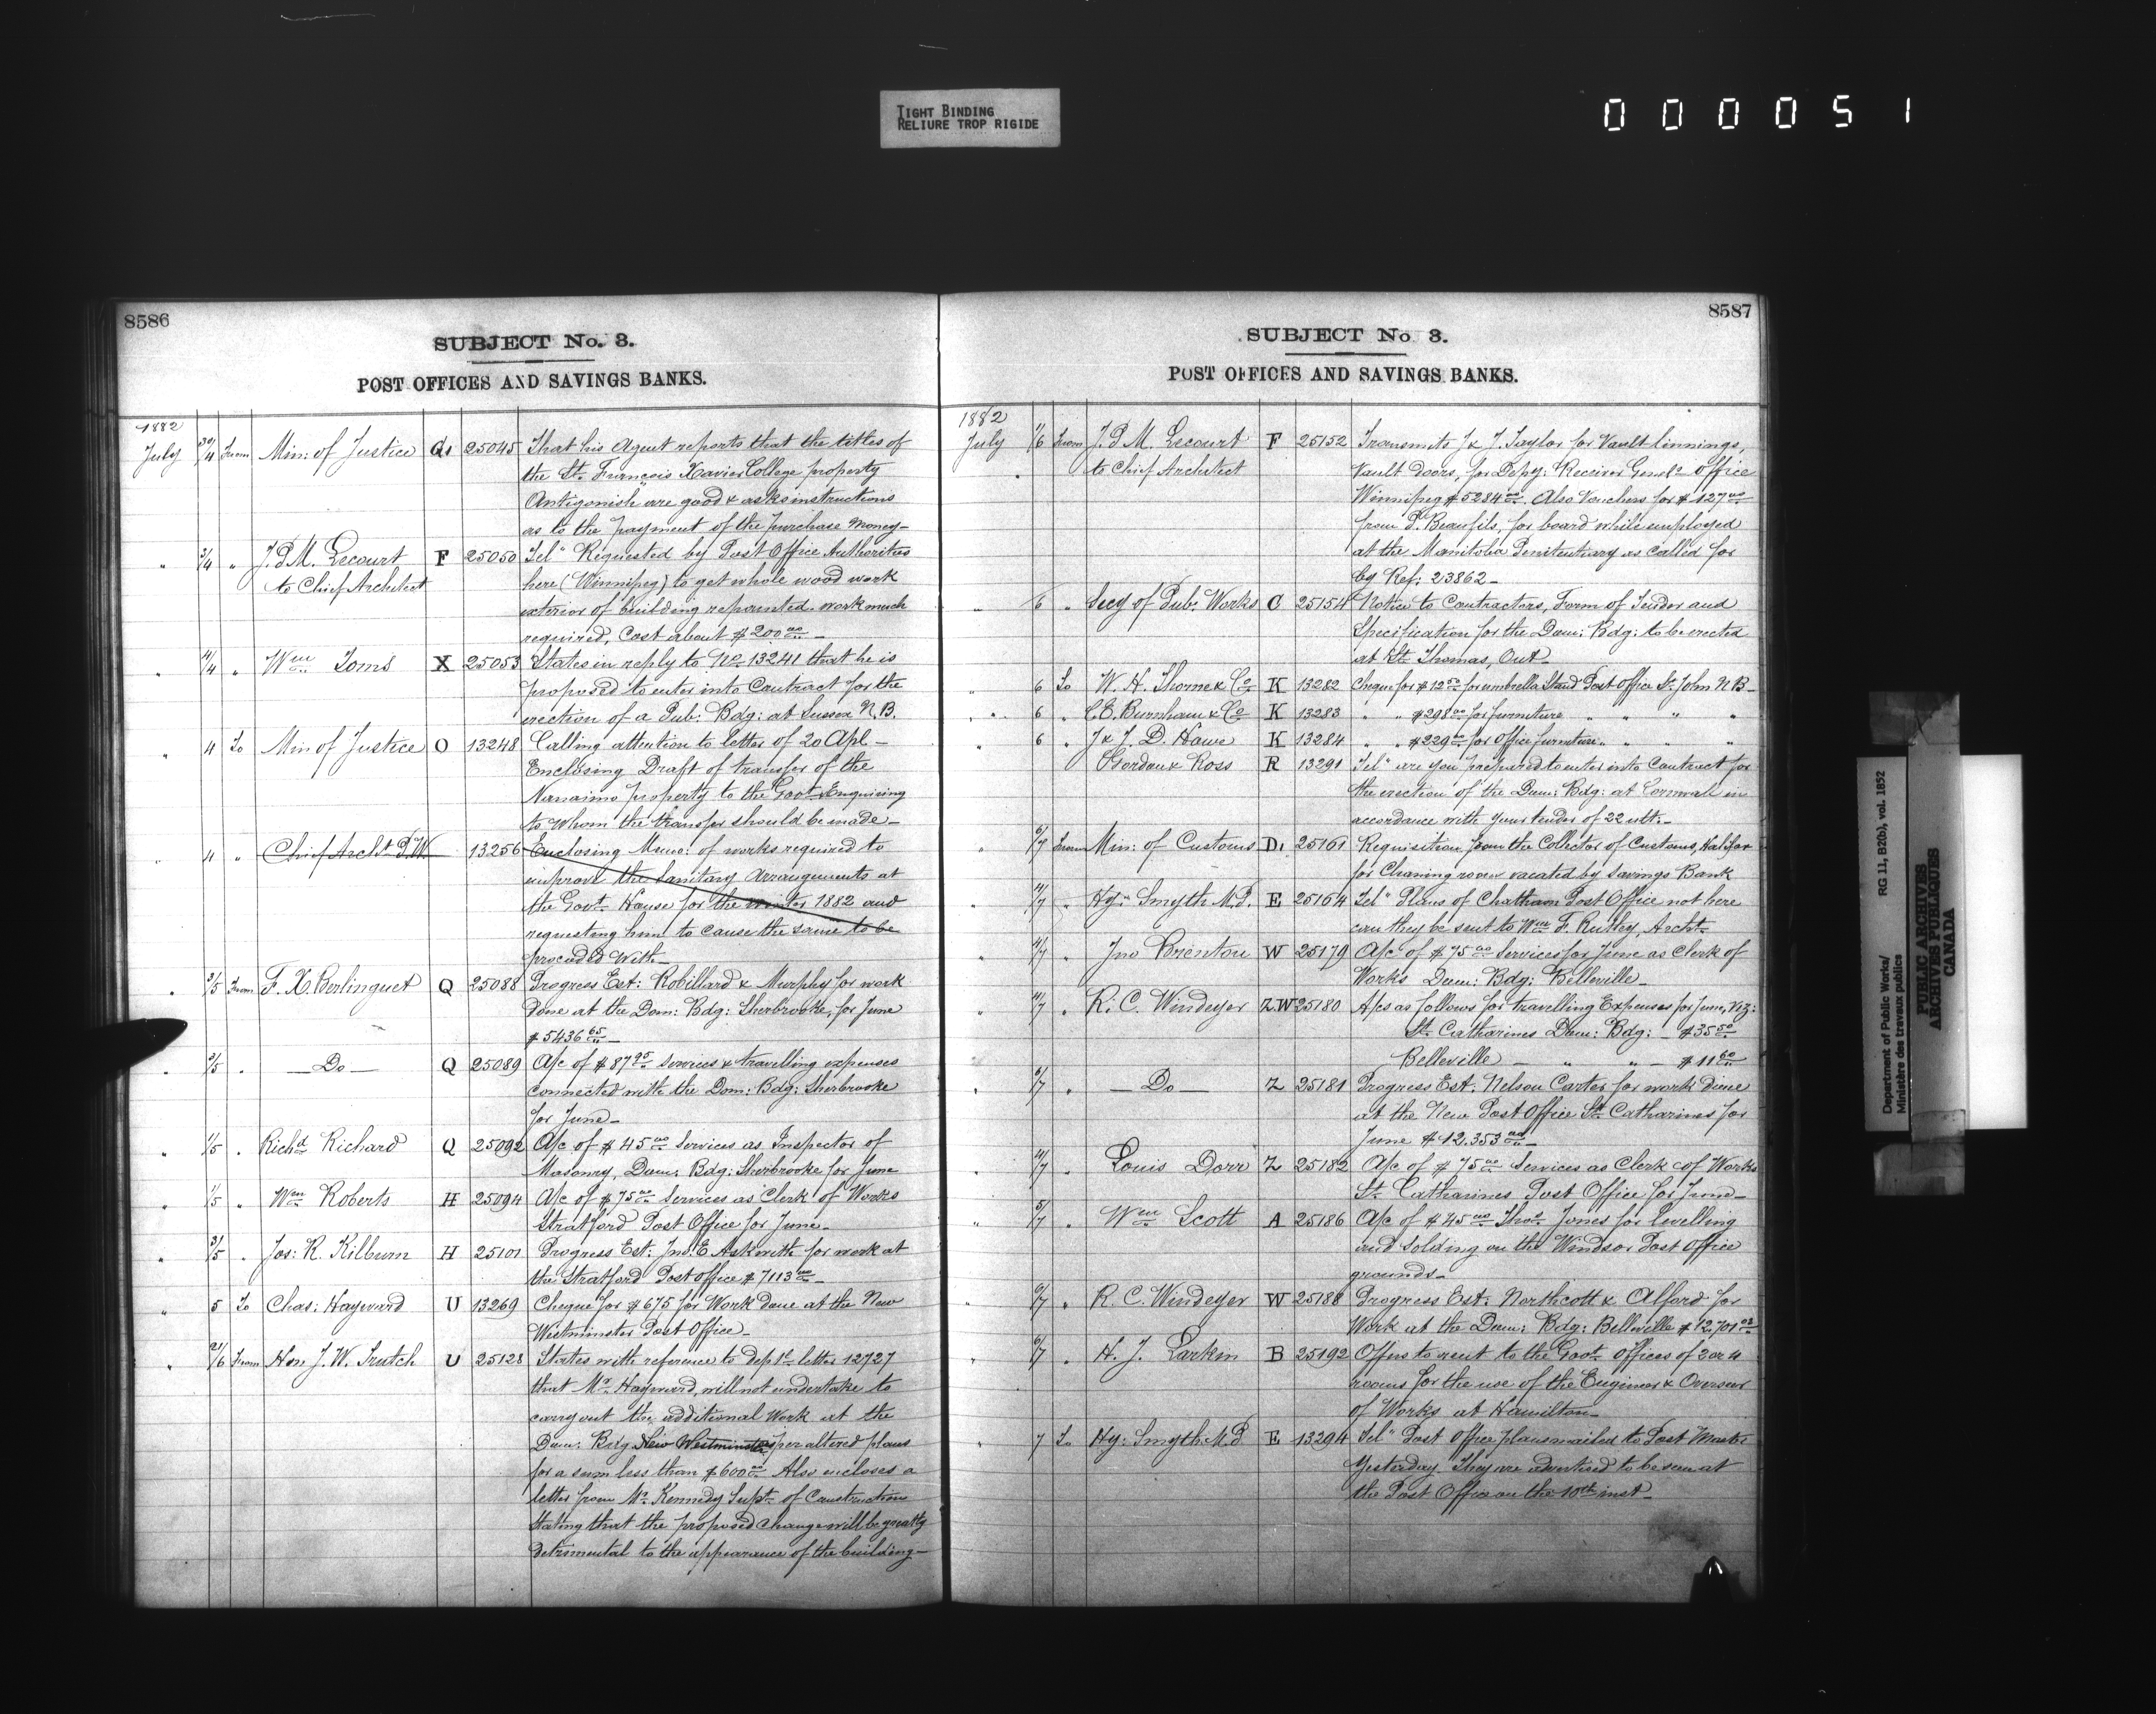 TIGHT BINDING
RELIURE TROP RIGIDE
000051
8586
SUBJECT No. 3.
POST OFFICES AND SAVINGS BANKS.
1882
July 30/4 From Min: of Justice Q1 25045 That his Agent reports that the titles of
the St. François Xavier College property
Antigonish are good & asks instructions
as to the payment of the purchase money—
" 3/4 " J.P.M. Lecourt F 25050 Tel" Requested by Post Office Authorities
to Chief Architect here (Winnipeg) to get whole wood work
exterior of building repainted. work much
required, Cost about $200.00—
" 4/4 " Wm Toms X 25053 States in reply to No 13241 that he is
proposed to enter into Contract for the
erection of a Pub: Bdg: at Sussex N.B.
" 4 To Min of Justice O 13248 Calling attention to letter of 20 Apl—
Enclosing Draft of transfer of the
Nanaimo property to the Govt. & Enquiring
to whom the transfer should be made—
" 4 " Chief Archt P.W. 13256 Enclosing Memo: of works required to
improve the Sanitary Arrangements at
the Govt. House for the winter 1882 and
requesting him to cause the same to be
proceeded with—
" 3/5 From F. X. Berlinguet Q 25088 Progress Est: Robillard & Murphy for work
done at the Dom: Bdg: Sherbrooke, for June
$5436.65—
" 3/5 " —Do— Q 25089 A/c of $87.95 services & travelling expenses
connected with the Dom: Bdg: Sherbrooke
for June—
" 1/5 " Richd Richard Q 25092 A/c of $45.00 Services as Inspector of
Masonry, Dom: Bdg: Sherbrooke for June
" 1/5 " Wm Roberts H 25094 A/c of $75.00 Services as Clerk of Works
Stratford Post Office for June—
" 3/5 " Jos: R. Kilburn H 25101 Progress Est: Jno. E Askwith for work at
the Stratford Post office $7113.00—
" 5 To Chas: Hayward U 13269 Cheque for $675 for Work done at the New
Westminster Post Office—
" 21/6 From Hon J. W. Trutch U 25128 States with reference to Deptl letter 12727
that Mr. Hayward, will not undertake to
carry out the additional work at the
Dom: Bdg New Westminster as per altered plans
for a sum less than $600.00 Also encloses a
letter from Mr. Kennedy Supt. of Construction
stating that the proposed change will be greatly
detrimental to the appearance of the building—
8587
SUBJECT No 3.
POST OFFICES AND SAVINGS BANKS.
1882
July 1/6 From J.P.M. Lecourt F 25152 Transmits J & J. Taylor for Vault linnings,
to Chief Architect Vault doors, for Depy: Receiver Genls office
Winnipeg $5284.00. Also Vouchers for $127.00
from P. Beaufils, for board while employed
at the Manitoba Penitentiary as called for
by Ref: 23862—
" 6 " Secy of Pub: Works C 25154 Notice to Contractors, Form of Tender and
Specification for the Dom: Bdg: to be erected
at St. Thomas, Ont—
" 6 To W. H. Thorne & Co K 13282 Cheque for $12.50 for umbrella Stand Post Office St. John N B—
" 6 " C.E. Burnham & Co K 13283 " " $298.00 for furniture " " " "
" 6 " J & J. D. Howe K 13284 " " $229.00 for Office furniture " " " "
Gordon & Ross R 13291 Tel" are you prepared to enter into Contract for
the erection of the Dom: Bdg: at Cornwall in
accordance with your tender of 22 ult.—
" 6/7 From Min: of Customs D1 25161 Requisition from the Collector of Customs, Halifax
for Cleaning room vacated by Savings Bank
" 4/7 " Hy: Smyth M.P. E 25164 Tel" Plans of Chatham Post Office not here
can they be sent to Wm F. Rutley, Archt.
" 4/7 " Jno Brenton W 25179 A/c of $75.00 Services for June as Clerk of
Works Dom: Bdg: Belleville—
" 4/7 " R. C. Windeyer Z.W 25180 A/cs as follows for travelling Expenses for June, Viz:
St. Catharines Dom: Bdg: — $35.50
Belleville — " " — $11.60
" 6/7 " —Do— Z 25181 Progress Est: Nelson Carter for works done
at the New Post Office St. Catharines for
June $12.353.00—
" 4/7 " Louis Dorr Z 25182 A/c of $75.00 Services as Clerk of Works
St. Catharines Post Office for June—
" 5/7 " Wm Scott A 25186 A/c of $45.00 Thos Jones for levelling
and solding on the Windsor Post Office
grounds—
" 6/7 " R. C. Windeyer W 25188 Progress Est: Northcott & Alford for
Work at the Dom: Bdg: Belleville $12,701.03
" 6/7 " H. J. Larkin B 25192 Offers to rent to the Govt. offices of 3 or 4
rooms for the use of the Engineer & Overseer
of Works at Hamilton—
" 7 To Hy: Smyth M.P E 13294 Tel" Post Office plans mailed to Post Master
Yesterday. They are advertised to be seen at
the Post Office on the 10th inst—
Department of Public Works/ RG 11, B2(b), vol. 1852
Ministère des travaux publics
PUBLIC ARCHIVES
ARCHIVES PUBLIQUES
CANADA